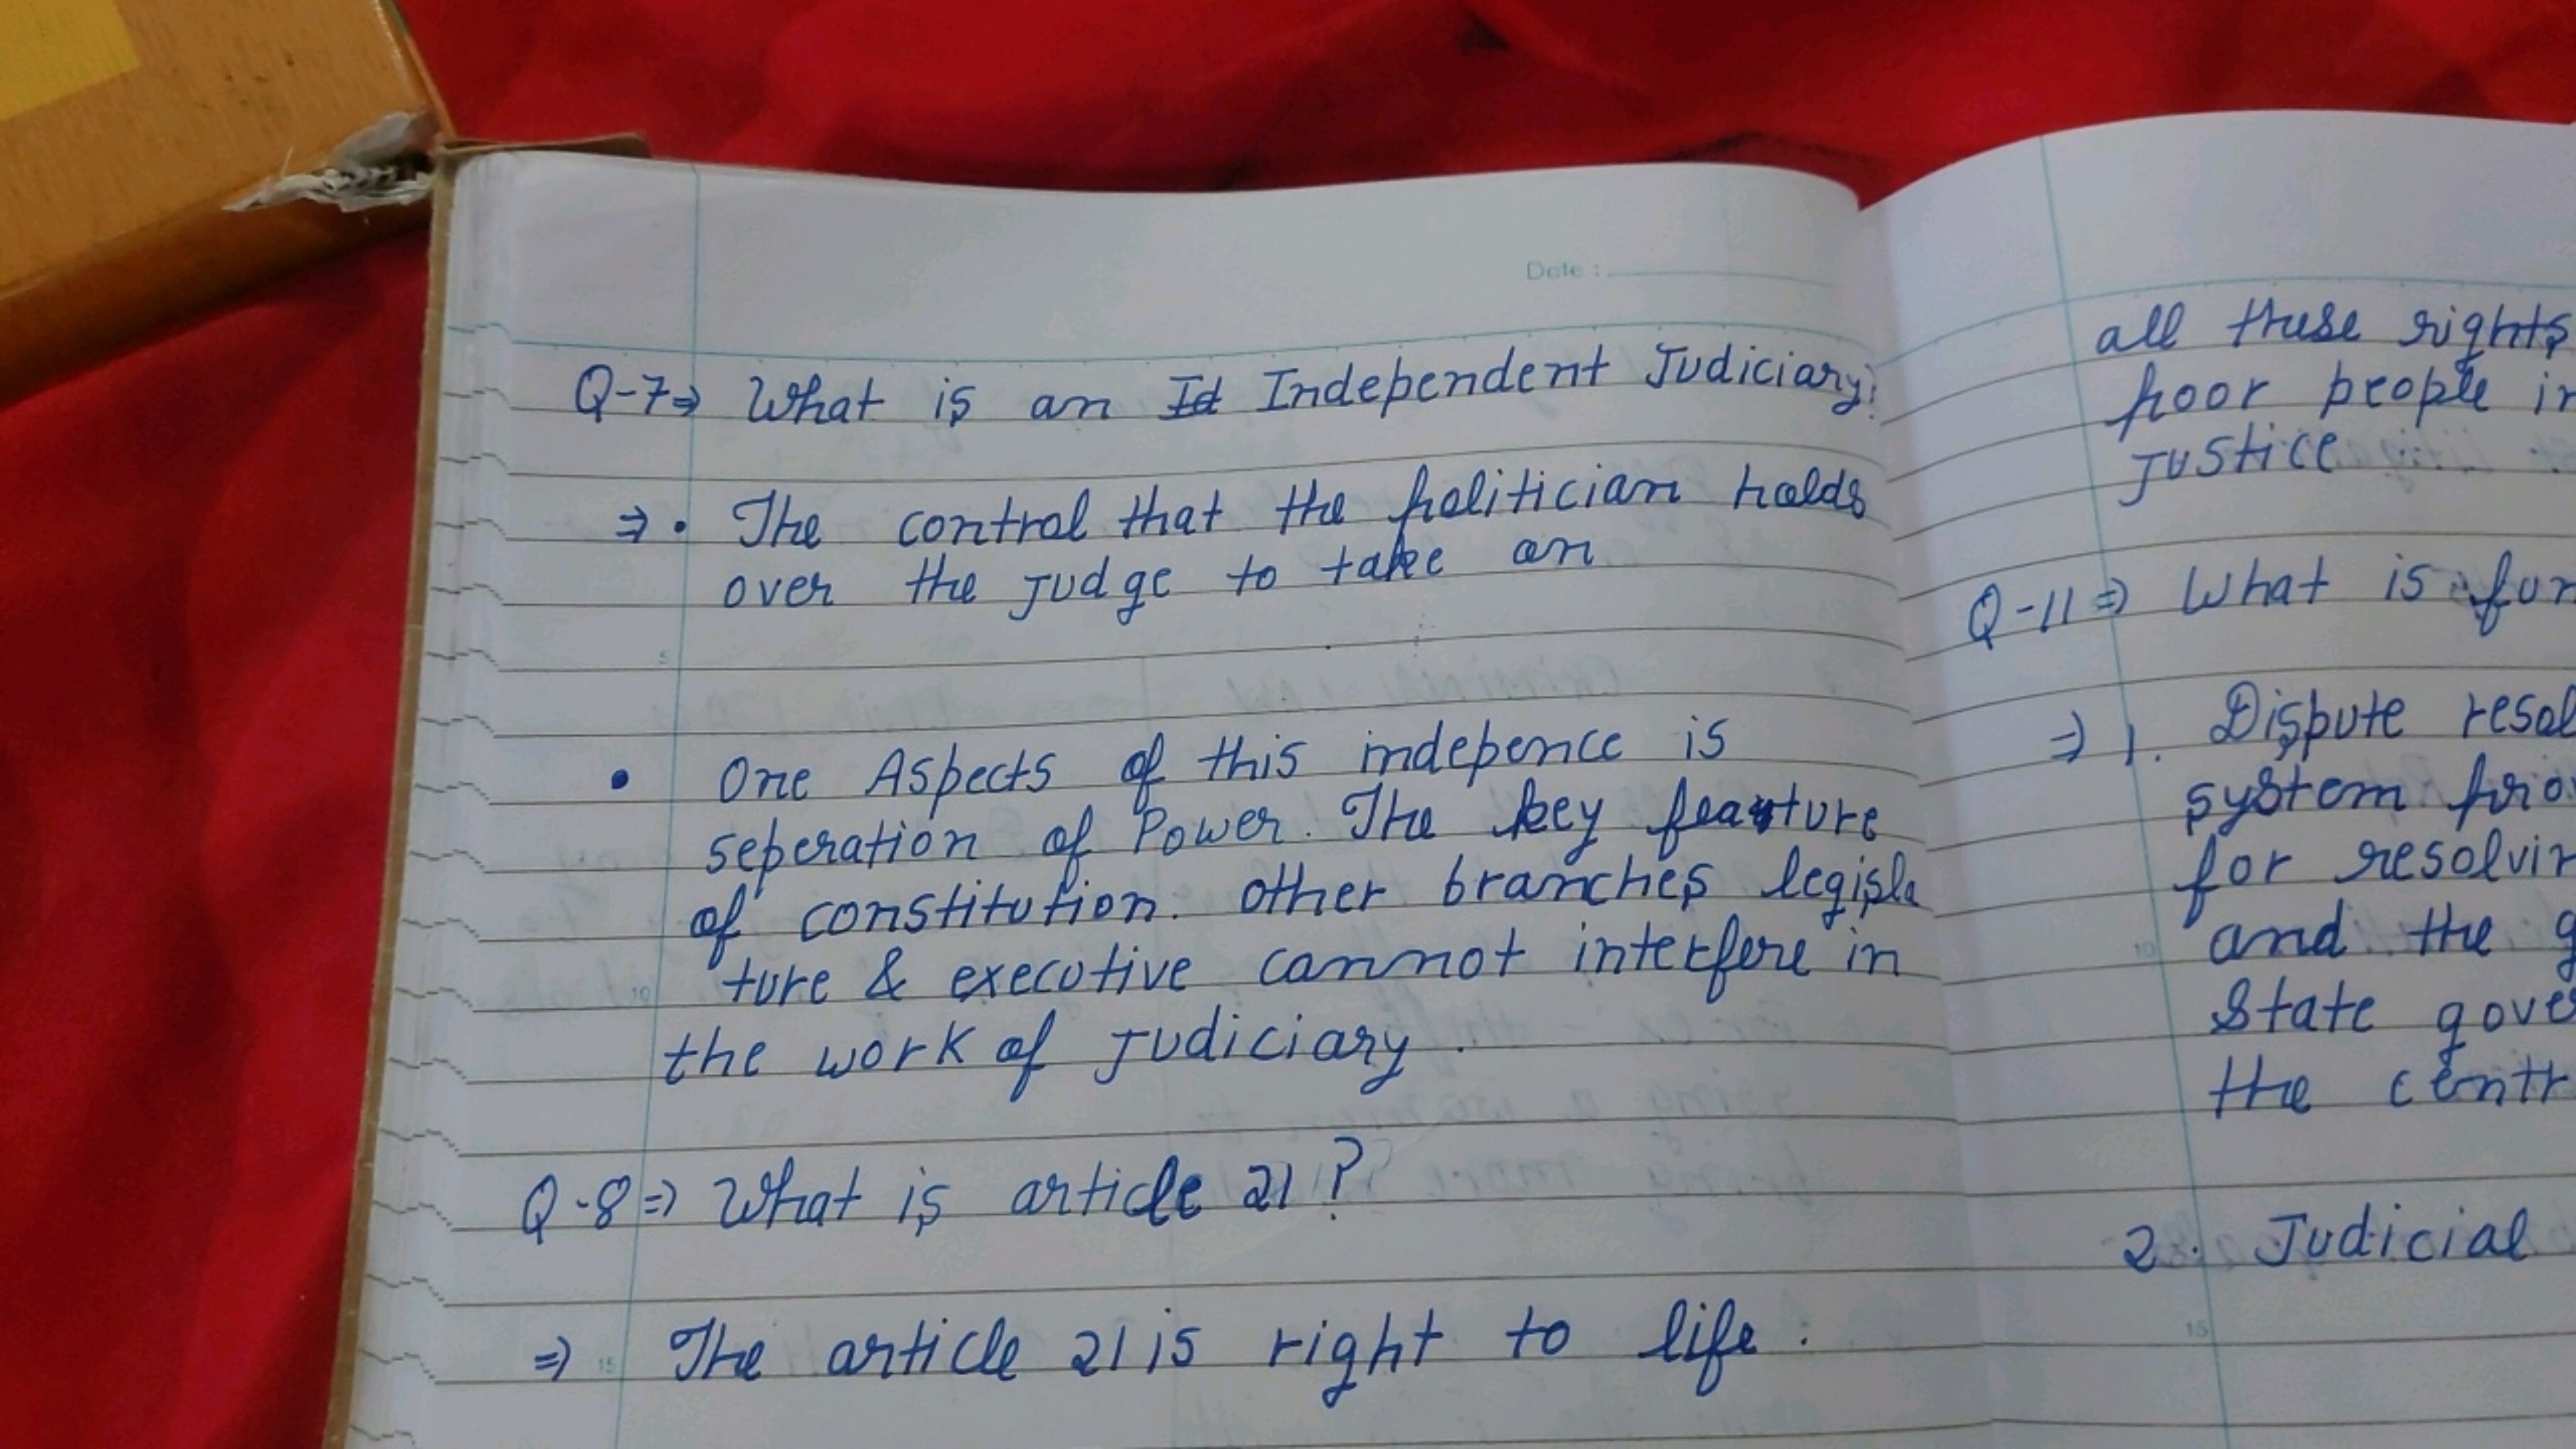 Date :
Q-7⇒ What is an Id Independent Judiciary?
⇒ • The control that the politician holds
over the judge to take an
5
• One Aspects of this indepence is
seperation of Power. The key feature
of constitution. other branches legisla
ture & executive cannot interfere in
10
the work of judiciary.
Q-8⇒ What is article 21?
⇒ 15 The article 21 is right to life.
all these rights
poor people in
justice
Q-11⇒ What is
⇒ 1. Dispute resol
system pro
for resolvin
10
and the g
State gove
the centr
2. Judicial
15